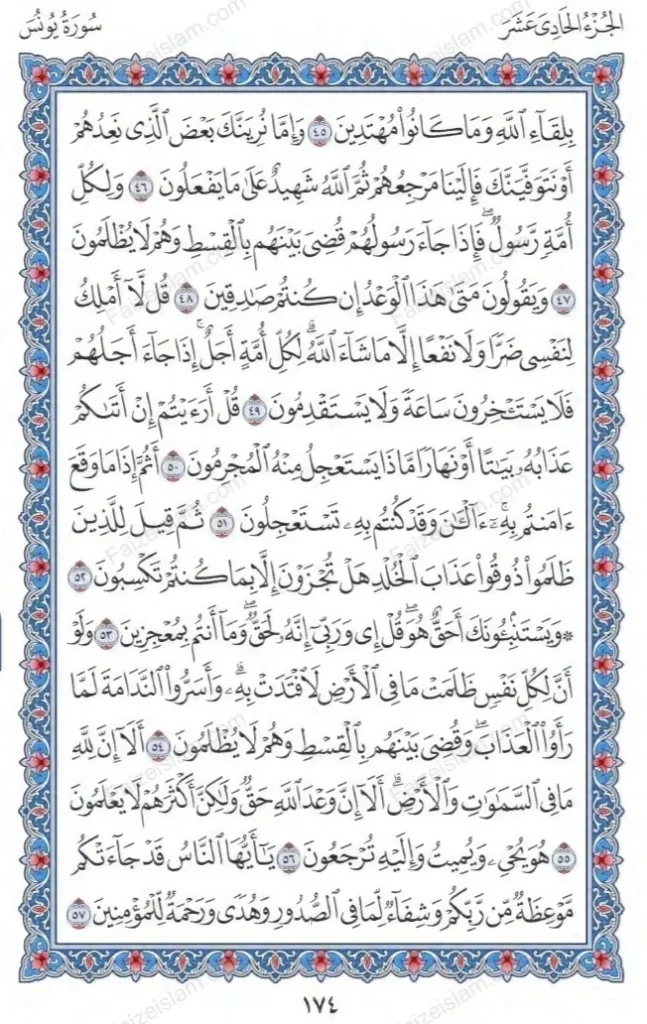 سُورَةُ يُونُسَ
الجُزْءُ الحَادِى عَشَرَ
بِلِقَآءِ ٱللَّهِ وَمَا كَانُوا۟ مُهْتَدِينَ ٤٥ وَإِمَّا نُرِيَنَّكَ بَعْضَ ٱلَّذِى نَعِدُهُمْ
أَوْ نَتَوَفَّيَنَّكَ فَإِلَيْنَا مَرْجِعُهُمْ ثُمَّ ٱللَّهُ شَهِيدٌ عَلَىٰ مَا يَفْعَلُونَ ٤٦ وَلِكُلِّ
أُمَّةٍ رَّسُولٌ ۖ فَإِذَا جَآءَ رَسُولُهُمْ قُضِىَ بَيْنَهُم بِٱلْقِسْطِ وَهُمْ لَا يُظْلَمُونَ
٤٧ وَيَقُولُونَ مَتَىٰ هَٰذَا ٱلْوَعْدُ إِن كُنتُمْ صَٰدِقِينَ ٤٨ قُل لَّآ أَمْلِكُ
لِنَفْسِى ضَرًّا وَلَا نَفْعًا إِلَّا مَا شَآءَ ٱللَّهُ ۗ لِكُلِّ أُمَّةٍ أَجَلٌ ۚ إِذَا جَآءَ أَجَلُهُمْ
فَلَا يَسْتَـْٔخِرُونَ سَاعَةً وَلَا يَسْتَقْدِمُونَ ٤٩ قُلْ أَرَءَيْتُمْ إِنْ أَتَىٰكُمْ
عَذَابُهُۥ بَيَٰتًا أَوْ نَهَارًا مَّاذَا يَسْتَعْجِلُ مِنْهُ ٱلْمُجْرِمُونَ ٥٠ أَثُمَّ إِذَا مَا وَقَعَ
ءَامَنتُم بِهِۦٓ ۚ ءَآلْـَٰٔنَ وَقَدْ كُنتُم بِهِۦ تَسْتَعْجِلُونَ ٥١ ثُمَّ قِيلَ لِلَّذِينَ
ظَلَمُوا۟ ذُوقُوا۟ عَذَابَ ٱلْخُلْدِ هَلْ تُجْزَوْنَ إِلَّا بِمَا كُنتُمْ تَكْسِبُونَ ٥٢
۞ وَيَسْتَنۢبِـُٔونَكَ أَحَقٌّ هُوَ ۖ قُلْ إِى وَرَبِّىٓ إِنَّهُۥ لَحَقٌّ ۖ وَمَآ أَنتُم بِمُعْجِزِينَ ٥٣ وَلَوْ
أَنَّ لِكُلِّ نَفْسٍ ظَلَمَتْ مَا فِى ٱلْأَرْضِ لَٱفْتَدَتْ بِهِۦ ۗ وَأَسَرُّوا۟ ٱلنَّدَامَةَ لَمَّا
رَأَوُا۟ ٱلْعَذَابَ ۖ وَقُضِىَ بَيْنَهُم بِٱلْقِسْطِ وَهُمْ لَا يُظْلَمُونَ ٥٤ أَلَآ إِنَّ لِلَّهِ
مَا فِى ٱلسَّمَٰوَٰتِ وَٱلْأَرْضِ ۗ أَلَآ إِنَّ وَعْدَ ٱللَّهِ حَقٌّ وَلَٰكِنَّ أَكْثَرَهُمْ لَا يَعْلَمُونَ
٥٥ هُوَ يُحْىِۦ وَيُمِيتُ وَإِلَيْهِ تُرْجَعُونَ ٥٦ يَٰٓأَيُّهَا ٱلنَّاسُ قَدْ جَآءَتْكُم
مَّوْعِظَةٌ مِّن رَّبِّكُمْ وَشِفَآءٌ لِّمَا فِى ٱلصُّدُورِ وَهُدًى وَرَحْمَةٌ لِّلْمُؤْمِنِينَ ٥٧
١٧٤
Faizeislam.com